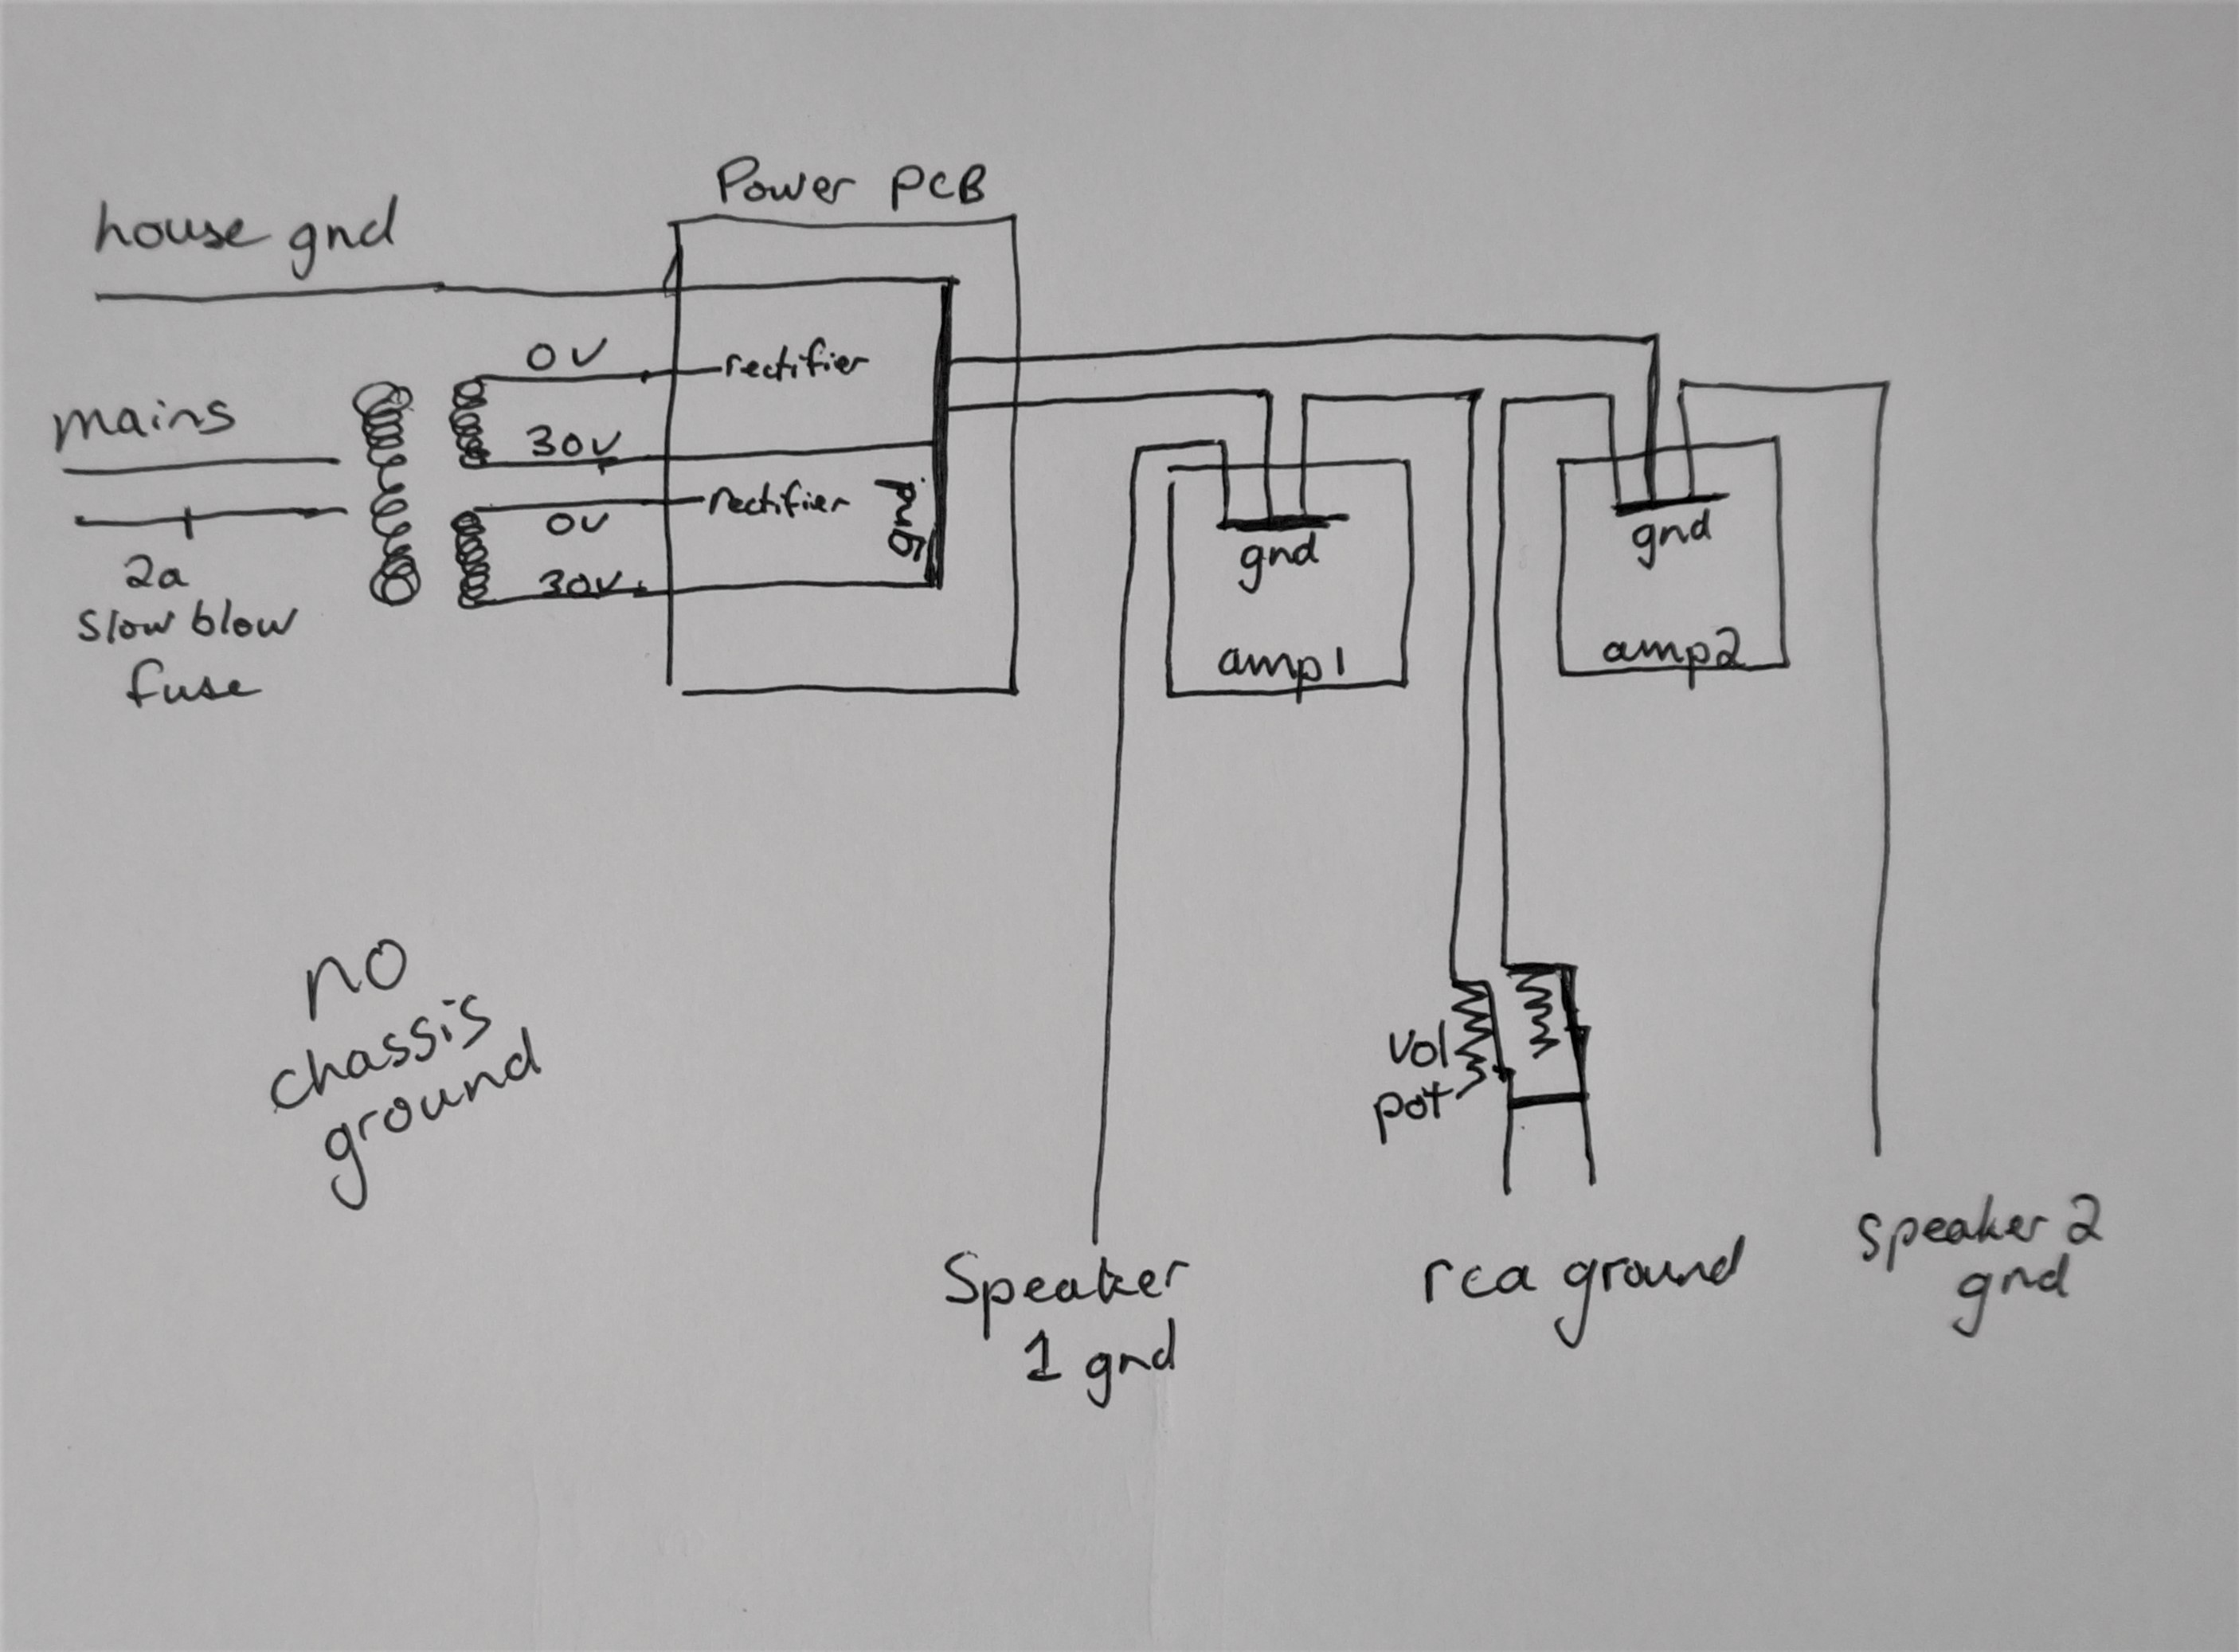 Power PCB
house gnd
0V
rectifier
mains
30V
rectifier
0V
gnd
30V
2a
slow blow
fuse
gnd
amp1
gnd
amp2
no
chassis
ground
Vol
pot
Speaker
1 gnd
rca ground
speaker 2
gnd